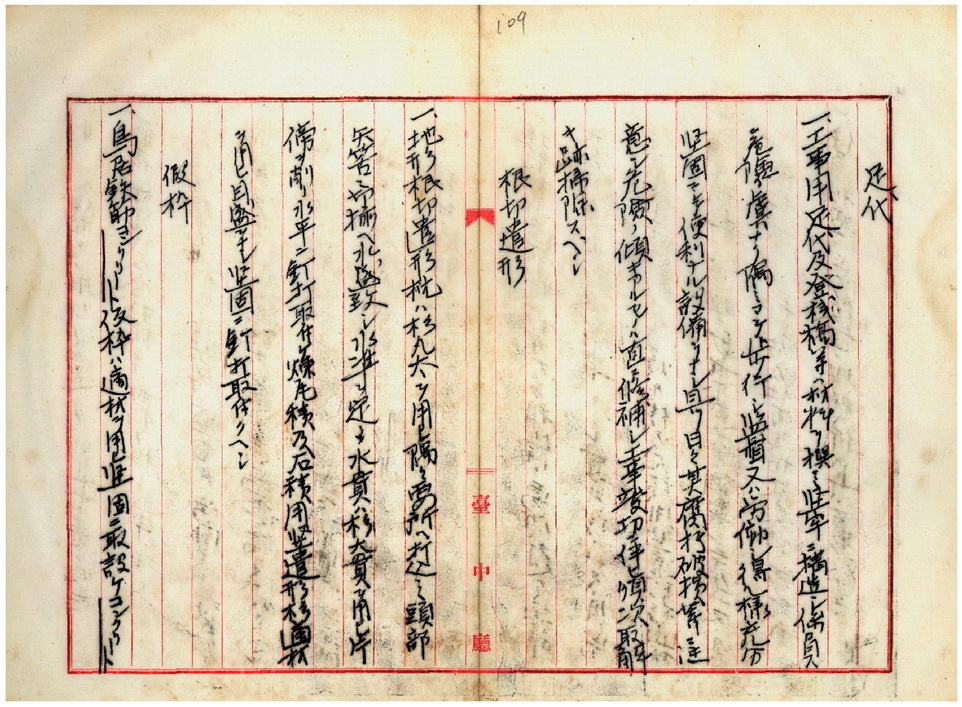 109
足代
一、工事用足代及登棧橋等ハ材料ヲ撰ミ堅牢ニ構造シ係員ハ
危險ノ虞ナク隅々マテ歩行シ監督又ハ労働シ得ル樣充分
堅固ニシテ便利ナル設備ヲナシ且ツ日々其腐朽破損等ニ注
意シ危險ノ傾キアルモノハ直ニ修補シ工事竣功ノ後順次取
跡掃除スヘシ
根切遣形
一、地形根切遣形杭ハ杉丸太ヲ用隅々要所ヘ打込ミ頭部
矢筈ニ切揃ヘ水盛致シ水準ヲ定メ水貫ハ杉大貫ヲ用片
傍ヲ削水平ニ釘打取付ケ煉瓦積及石積用竪遣形ハ適材
ヲ用目盛ヲナシ堅固ニ釘打取付クヘシ
假枠
一、鳥居鉄筋コンクリート仮枠ハ適材ヲ用堅固ニ取設ケコンクリート
臺中廳